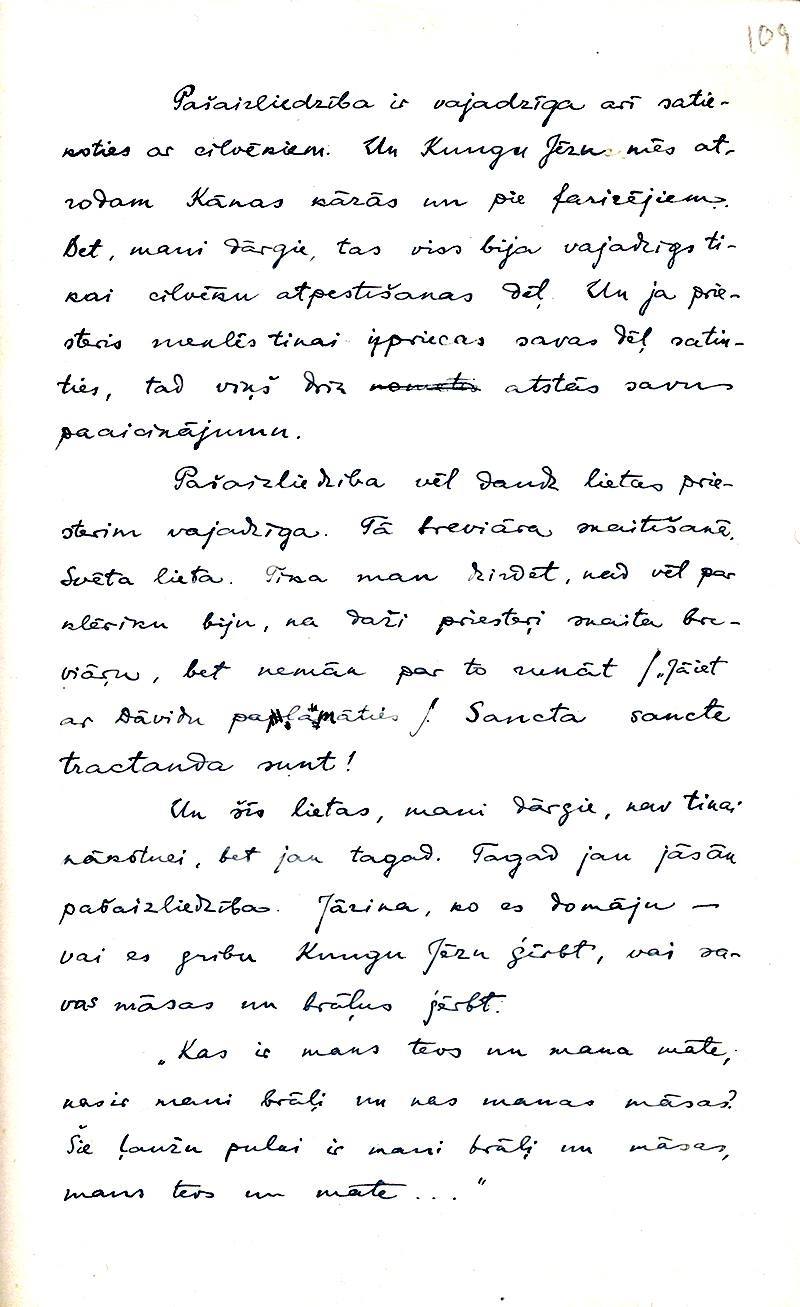 109
Pašaizliedzība ir vajadzīga arī satie-
koties ar cilvēkiem. Un Kungu Jēzu mēs at-
rodam Kānas kāzās un pie farizējiem.
Bet, mani dārgie, tas viss bija vajadzīgs ti-
kai cilvēku atpestīšanas dēļ. Un ja prie-
steris meklēs tikai izpriecas savas dēļ satik-
ties, tad viņš drīz atstās savu
paaicinājumu.
Pašaizliedzība vēl daudz lietas prie-
sterim vajadzīga. Tā breviāra skaitīšanā.
Svēta lieta. Tika man dzirdēt, kad vēl par
klēriku biju, ka daži priesteŗi skaita bre-
viāŗu, bet nemāk par to runāt /„Jāiet
ar Dāvidu /. Sancta sancte
tractanda sunt!
Un šīs lietas, mani dārgie, nav tikai
nākotnei, bet jau tagad. Tagad jau jāsāk
pašaizliedzība. Jāzina, ko es domāju —
vai es gribu Kungu Jēzu ģērbt, vai sa-
vas māsas un brāļus ģērbt.
„Kas ir mans tēvs un mana māte,
kas ir mani brāļi un kas manas māsas?
Šie ļaužu pulki ir mani brāļi un māsas,
mans tēvs un māte ..."